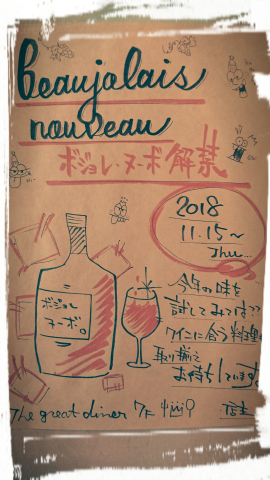 Beaujolais
nouveau
ボジョレ・ヌーボ解禁
2018
11.15~
Thu...
今年の味を
試してみては??
ワインに合う料理
取り揃え
お待ちしています。
ボジョレ
ヌーボ。
The great diner
店主